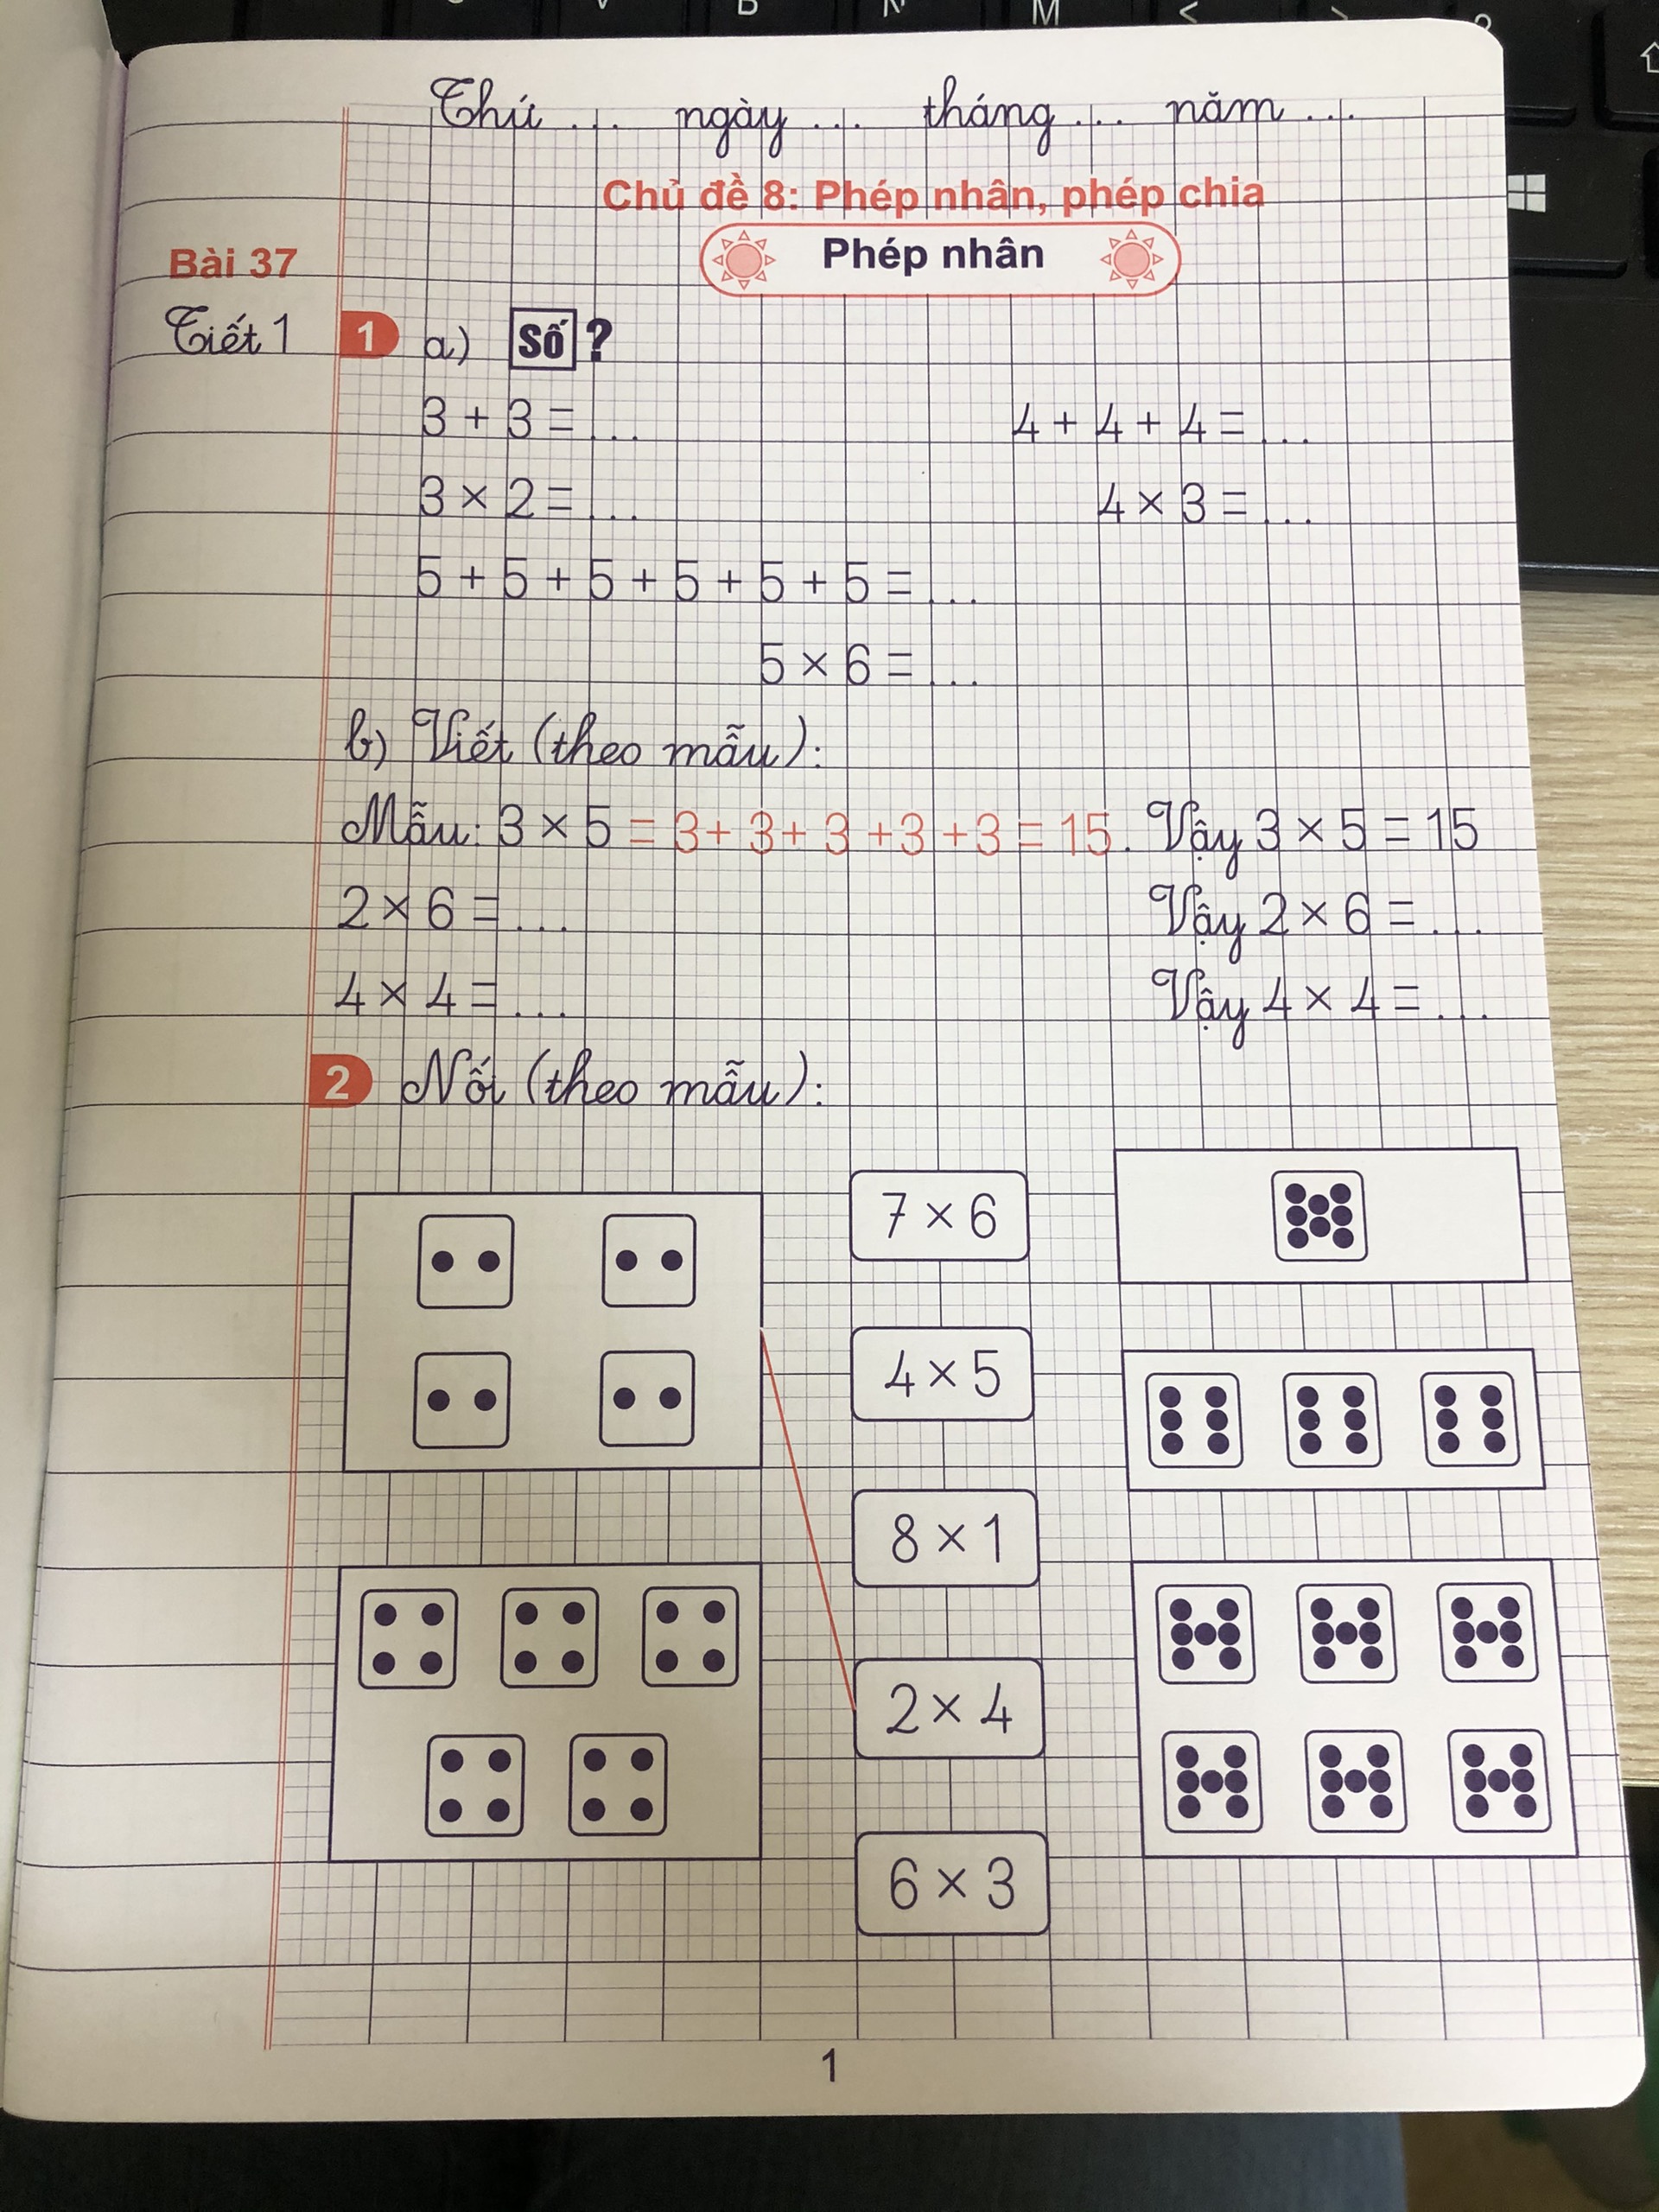 B N M < >
Thứ ... ngày ... tháng ... năm ...
Chủ đề 8: Phép nhân, phép chia
Bài 37
Phép nhân
Tiết 1
1 a) Số ?
3 + 3 = ... 4 + 4 + 4 = ...
3 × 2 = ... 4 × 3 = ...
5 + 5 + 5 + 5 + 5 + 5 = ...
5 × 6 = ...
b) Viết (theo mẫu):
Mẫu: 3 × 5 = 3 + 3 + 3 + 3 + 3 = 15. Vậy 3 × 5 = 15
2 × 6 = ... Vậy 2 × 6 = ...
4 × 4 = ... Vậy 4 × 4 = ...
2 Nối (theo mẫu):
7 × 6
4 × 5
8 × 1
2 × 4
6 × 3
1